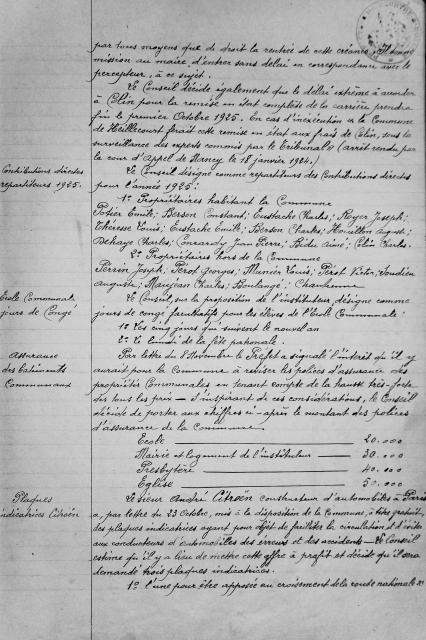 par tous moyens que de droit la rentrée de cette créance. Il donne
mission au maire, d'entrer sans délai en correspondance avec le
percepteur, à ce sujet.
Le Conseil décide également que le délai extrême à accorder
à Colin pour la remise en état complète de la carrière prendra
fin le premier Octobre 1925. En cas d'inexécution la Commune
de Heillecourt ferait cette remise en état aux frais de Colin, sous la
surveillance des experts commis par le Tribunal (arrêt rendu par
la cour d'Appel de Nancy le 18 janvier 1924.)
Contributions directes
répartiteurs 1925.
Le Conseil désigne comme répartiteurs des Contributions directes
pour l'année 1925:
1° Propriétaires habitant la Commune
Potier Emile; Berson Constant; Eustache Charles; Royer Joseph;
Thérèse Louis; Eustache Emile; Berson Charles; Houillon August;
Dehaye Charles; Conrardy Jean Pierre; Aimé; Colin Charles.
2° Propriétaires hors de la Commune
Perrin Joseph; Perot Georges; Munier Louis; Perot Victor;
Auguste; Maujean Charles; Boulangé;
Ecole Communale
jours de Congé
Le Conseil, sur la proposition de l'instituteur, désigne comme
jours de congé facultatifs pour les élèves de l'Ecole Communale:
1° Les cinq jours qui suivent le nouvel an
2° Le lundi de la fête patronale.
Assurance
des bâtiments
Communaux
Par lettre du 8 Novembre le Préfet a signalé l'intérêt qu'il y
aurait pour la Commune à reviser les polices d'assurance des
propriétés Communales en tenant compte de la hausse très-forte
des tous les prix — S'inspirant de ces considérations, le Conseil
décide de porter aux chiffres ci-après le montant des polices
d'assurance de la Commune.
Ecole — 20.000
Mairie et logement de l'instituteur — 30.000
Presbytère — 40.000
Eglise — 50.000
Plaques
indicatrices Citroën
Le sieur André Citroën constructeur d'automobiles à Paris
a, par lettre du 23 Octobre, mis à la disposition de la Commune, à titre gratuit,
des plaques indicatrices ayant pour objet de faciliter la circulation et d'éviter
aux conducteurs d'automobiles des erreurs et des accidents — Le Conseil
estime qu'il y a lieu de mettre cette offre à profit et décide qu'il sera
demandé trois plaques indicatrices.
1° l'une pour être apposée au croisement de la route nationale